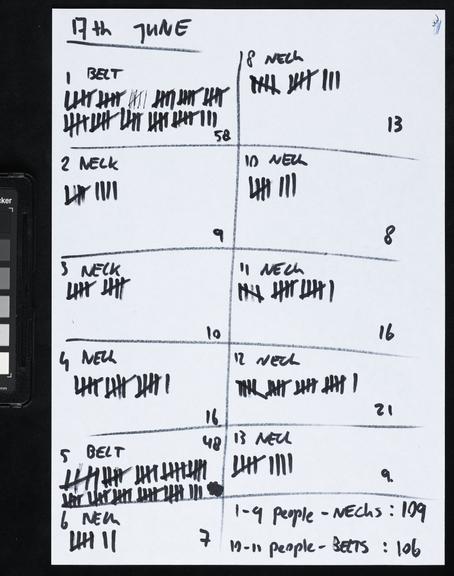 17th JUNE
1 BELT
58
2 NECK
9
3 NECK
10
4 NECK
16
5 BELT
48
6 NECK
7
8 NECK
13
10 NECK
8
11 NECK
16
12 NECK
21
13 NECK
9
1-9 people - NECKS : 109
10-11 people - BELTS : 106
cker